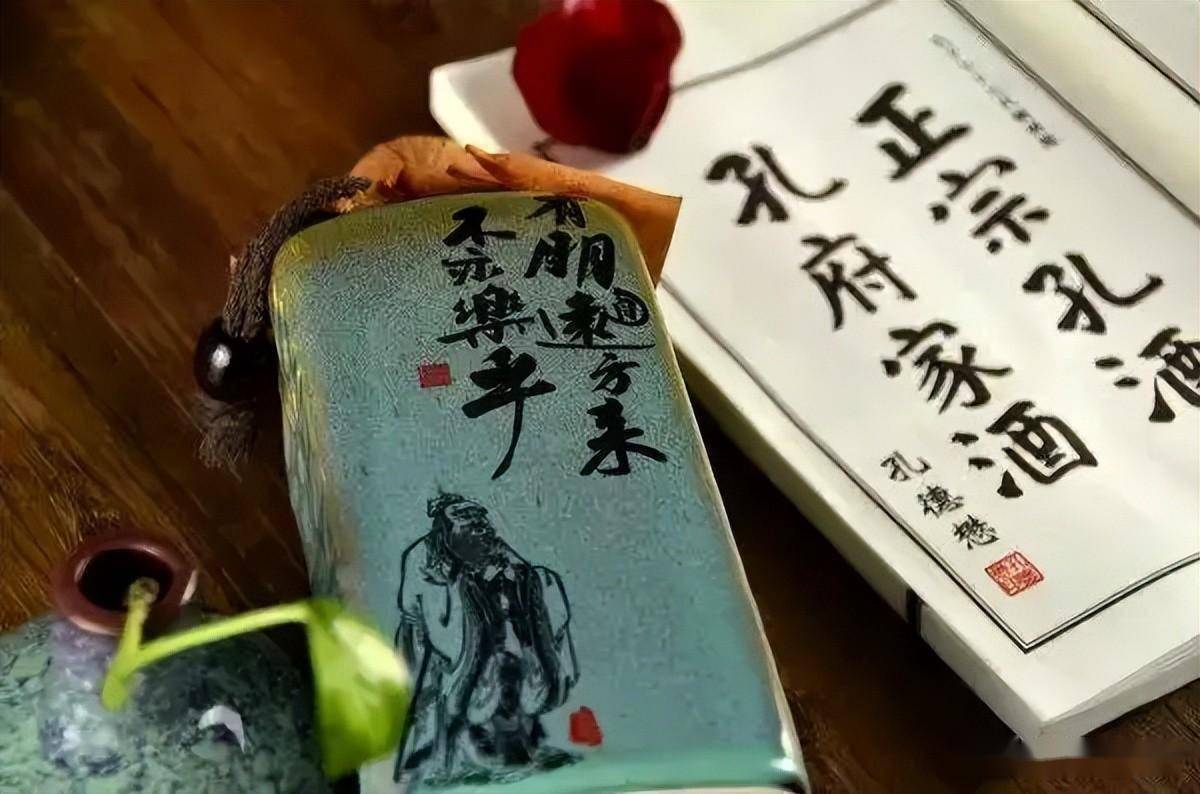 正宗孔酒
孔府家酒
孔德懋
有朋自遠方来
不亦樂乎